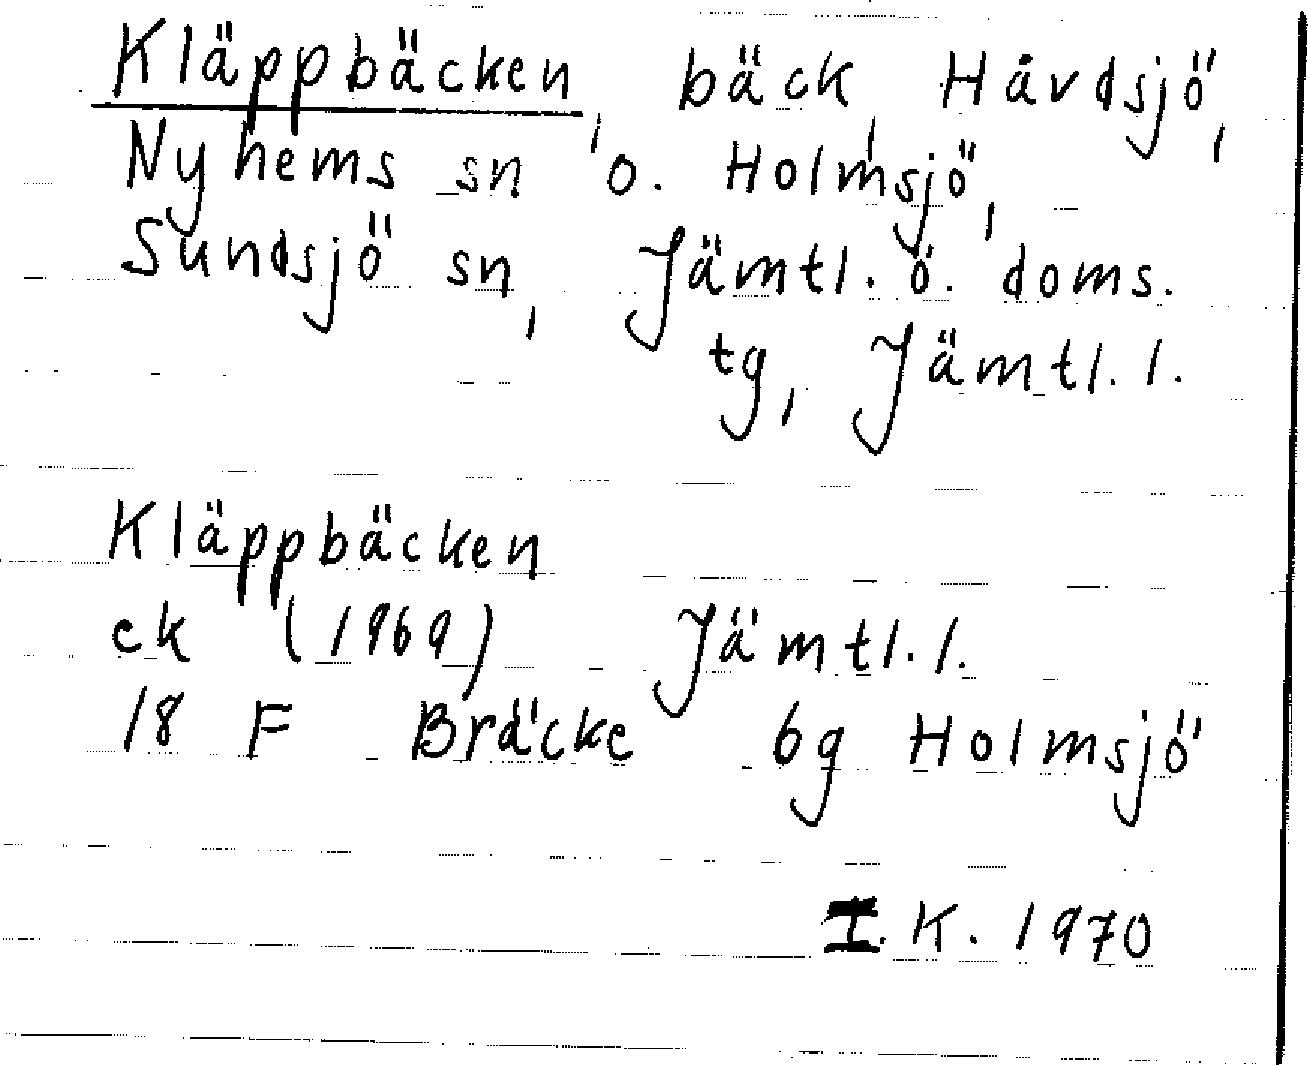 Kläppbäcken, bäck, Håvdsjö,
Nyhems sn o. Holmsjö,
Sundsjö sn, Jämtl. ö. doms.
tg, Jämtl. l.
Kläppbäcken
ek (1969) Jämtl. l.
18 F Bräcke 6g Holmsjö
I. K. 1970